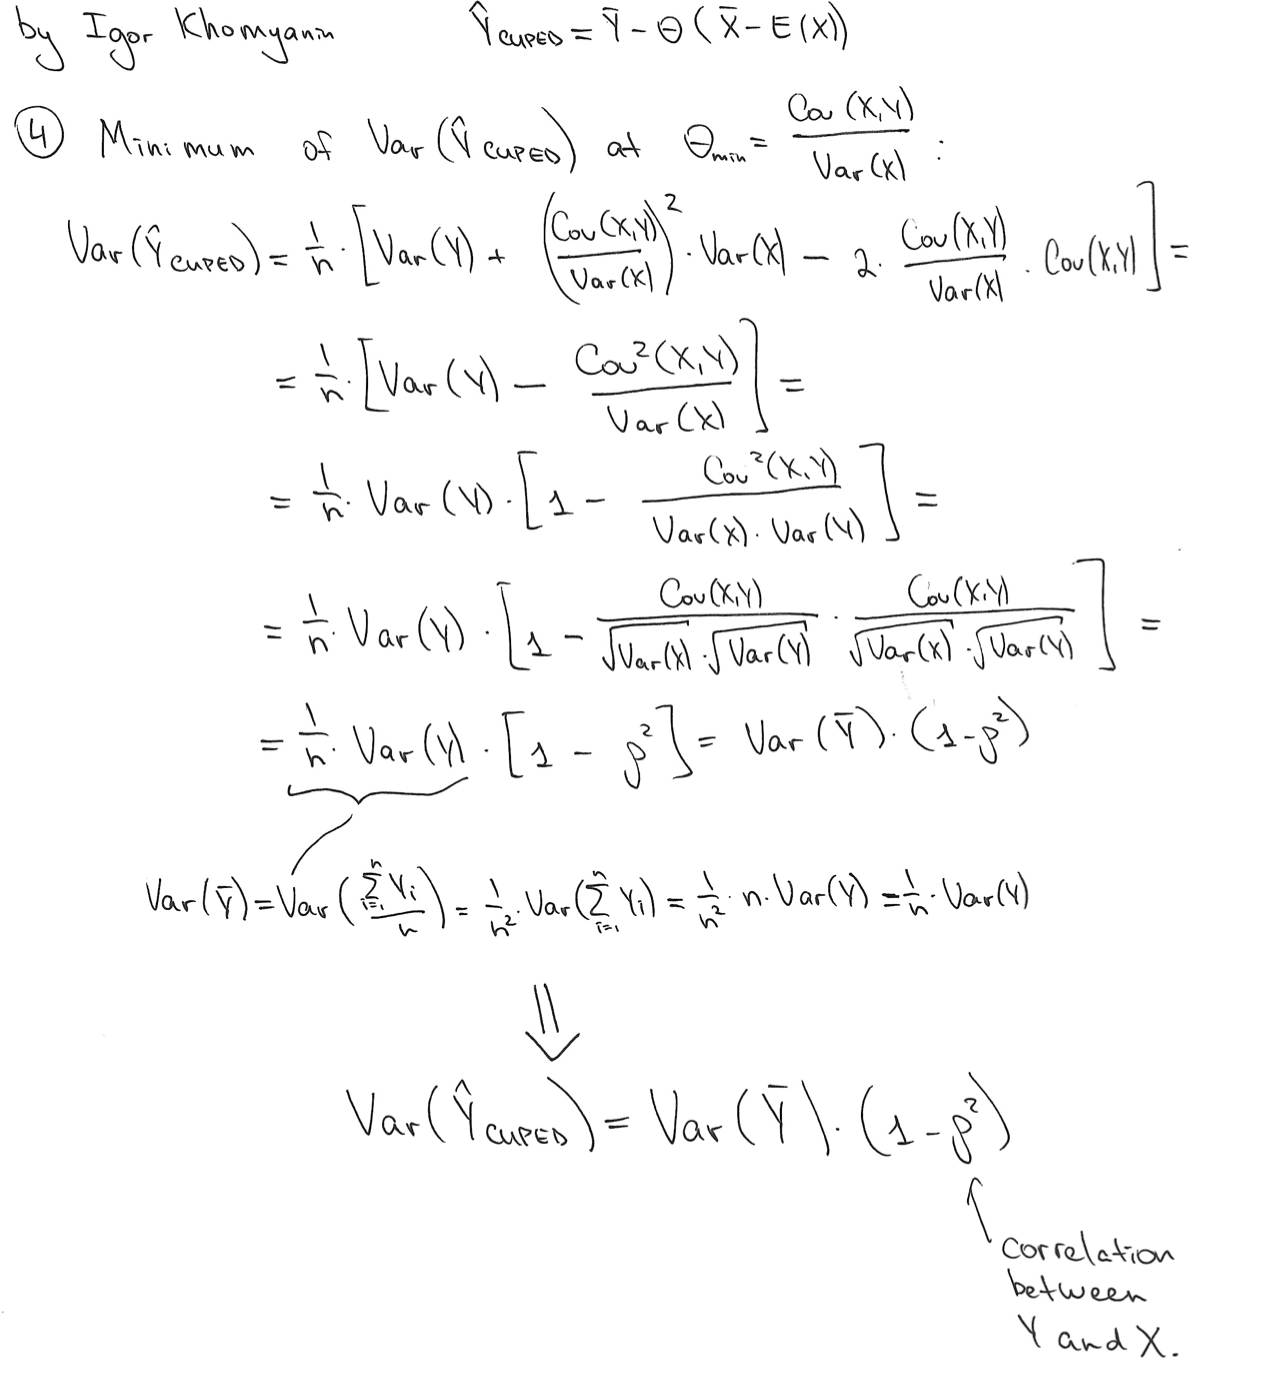 by Igor Khomyanin Ŷ_CUPED = Ȳ - Θ (X̄ - E(X))
④ Minimum of Var(Ŷ_CUPED) at Θ_min = Cov(X,Y) / Var(X) :
Var(Ŷ_CUPED) = 1/n · [Var(Y) + (Cov(X,Y) / Var(X))² · Var(X) - 2 · Cov(X,Y) / Var(X) · Cov(X,Y)] =
= 1/n · [Var(Y) - Cov²(X,Y) / Var(X)] =
= 1/n · Var(Y) · [1 - Cov²(X,Y) / (Var(X) · Var(Y))] =
= 1/n · Var(Y) · [1 - Cov(X,Y) / (√Var(X) · √Var(Y)) · Cov(X,Y) / (√Var(X) · √Var(Y))] =
= 1/n · Var(Y) · [1 - ρ²] = Var(Ȳ) · (1-ρ²)
Var(Ȳ) = Var(∑_{i=1}^{n} Y_i / n) = 1/n² · Var(∑_{i=1}^{n} Y_i) = 1/n² · n · Var(Y) = 1/n · Var(Y)
⇓
Var(Ŷ_CUPED) = Var(Ȳ) · (1-ρ²)
correlation
between
Y and X.